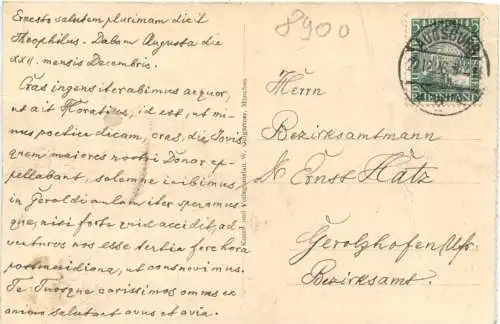 8900
Ernesto salutem plurimam dicit
Theophilus. Dabam Augusta die
XXII. mensis Decembris.
Cras ingens iterabimus aequor,
ut ait Horatius, id est, ut mi-
nus poetice dicam, cras, die Jovis
quem maiores nostri Donar ap-
pellabant, solemne inibimus
in Geroldi aulam iter speramus-
que, nisi forte quid accidit, ad-
venturos nos esse tertia fere hora
postmeridiana, ut consuevimus.
Te Tuosque carissimos omnes ex
animo salutant avus et avia.
Kunst- und Verlagsanstalt W. München
AUGSBURG
Herrn
Bezirksamtmann
Dr. Ernst Hatz
Gerolzhofen/Ufr.
Bezirksamt.